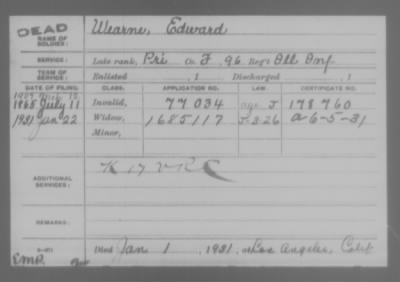 DEAD
NAME OF SOLDIER:
Wearne, Edward
SERVICE:
Late rank, Pri Co. F, 96. Reg't Ill Inf
TERM OF SERVICE:
Enlisted , 1 Discharged , 1
DATE OF FILING. CLASS. APPLICATION NO. LAW. CERTIFICATE NO.
1865 July 11 Invalid, 77 034 178 760
1931 Jan 22 Widow, 1685117 a-6-5-31
Minor,
ADDITIONAL SERVICES:
K 17 VRC
REMARKS:
Died Jan 1, 1931, at Los Angeles, Calif